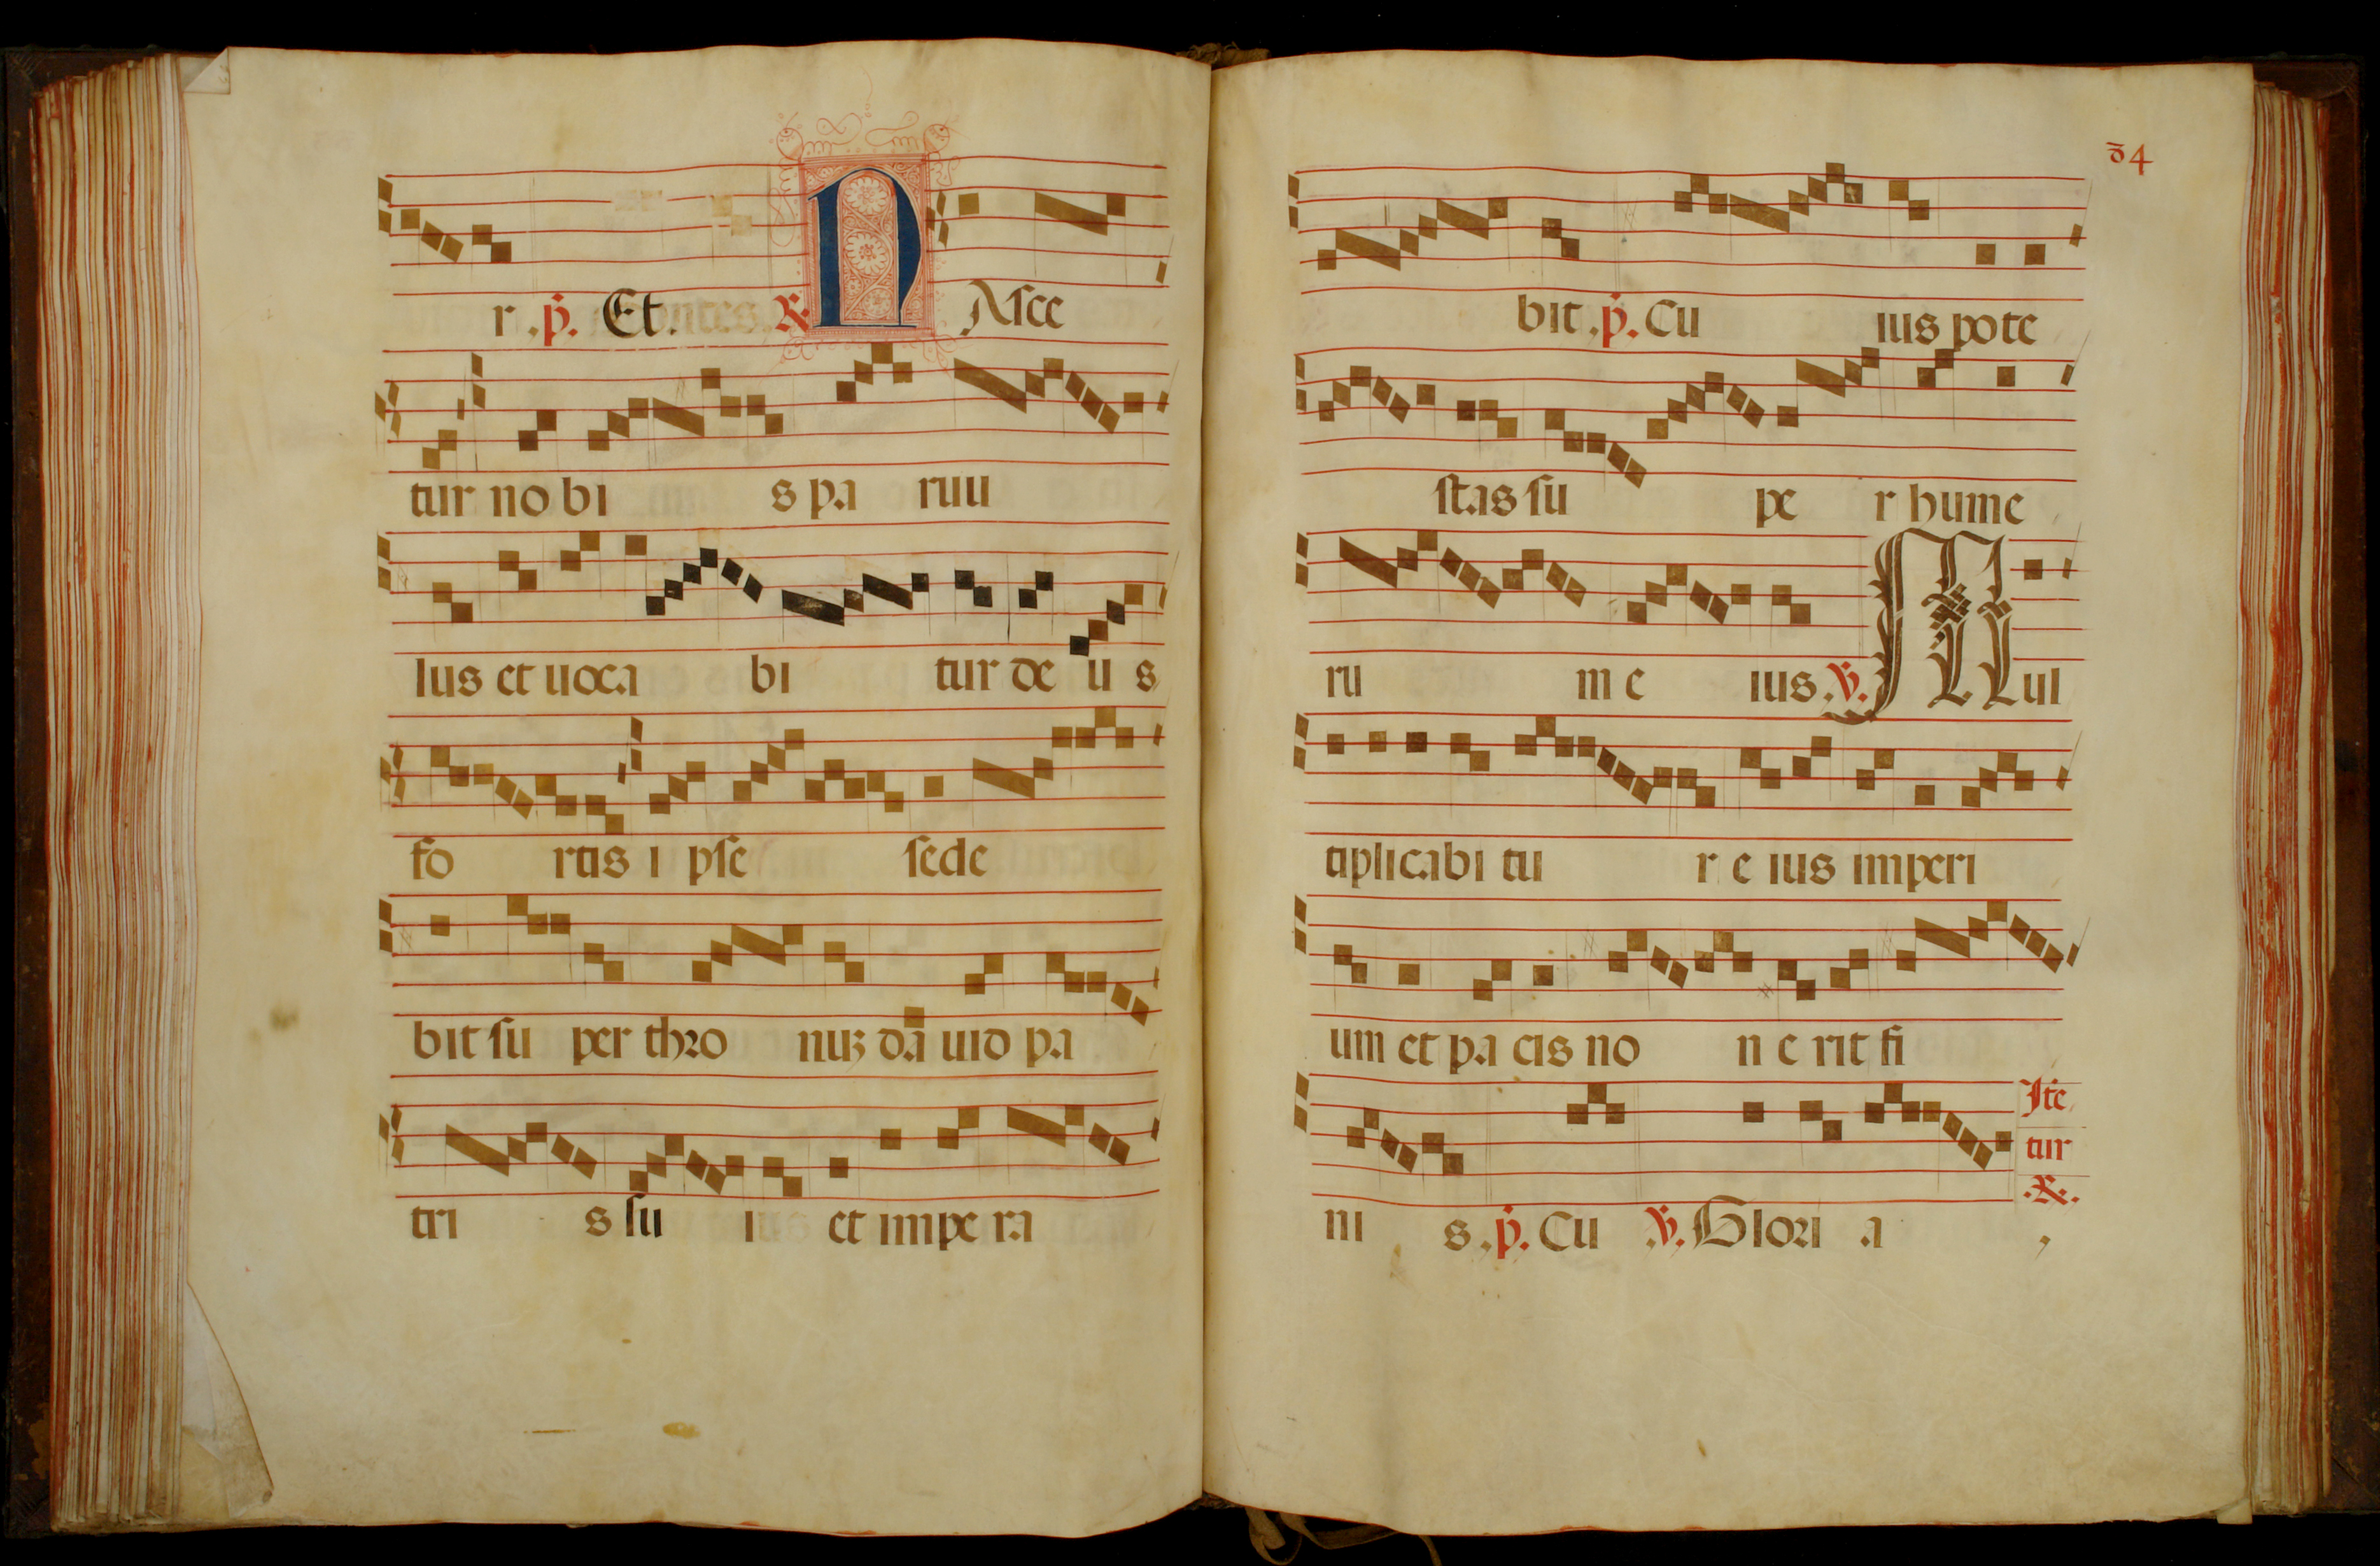 r . p̃. Et. ℟ NAsce
tur no bi s pa ruu
lus et uoca bi tur de u s
fo rtis i pse sede
bit su per thro nuʒ da uid pa
tri s su i us et impe ra
34
bit . p̃. Cu ius pote
stas su pe r hume
ru m e ius . ℣. Mul
tiplicabi tu r e ius imperi
um et pa cis no n e rit fi
ni s . p̃. Cu ℣. Glori a
Ite
tur
℟.